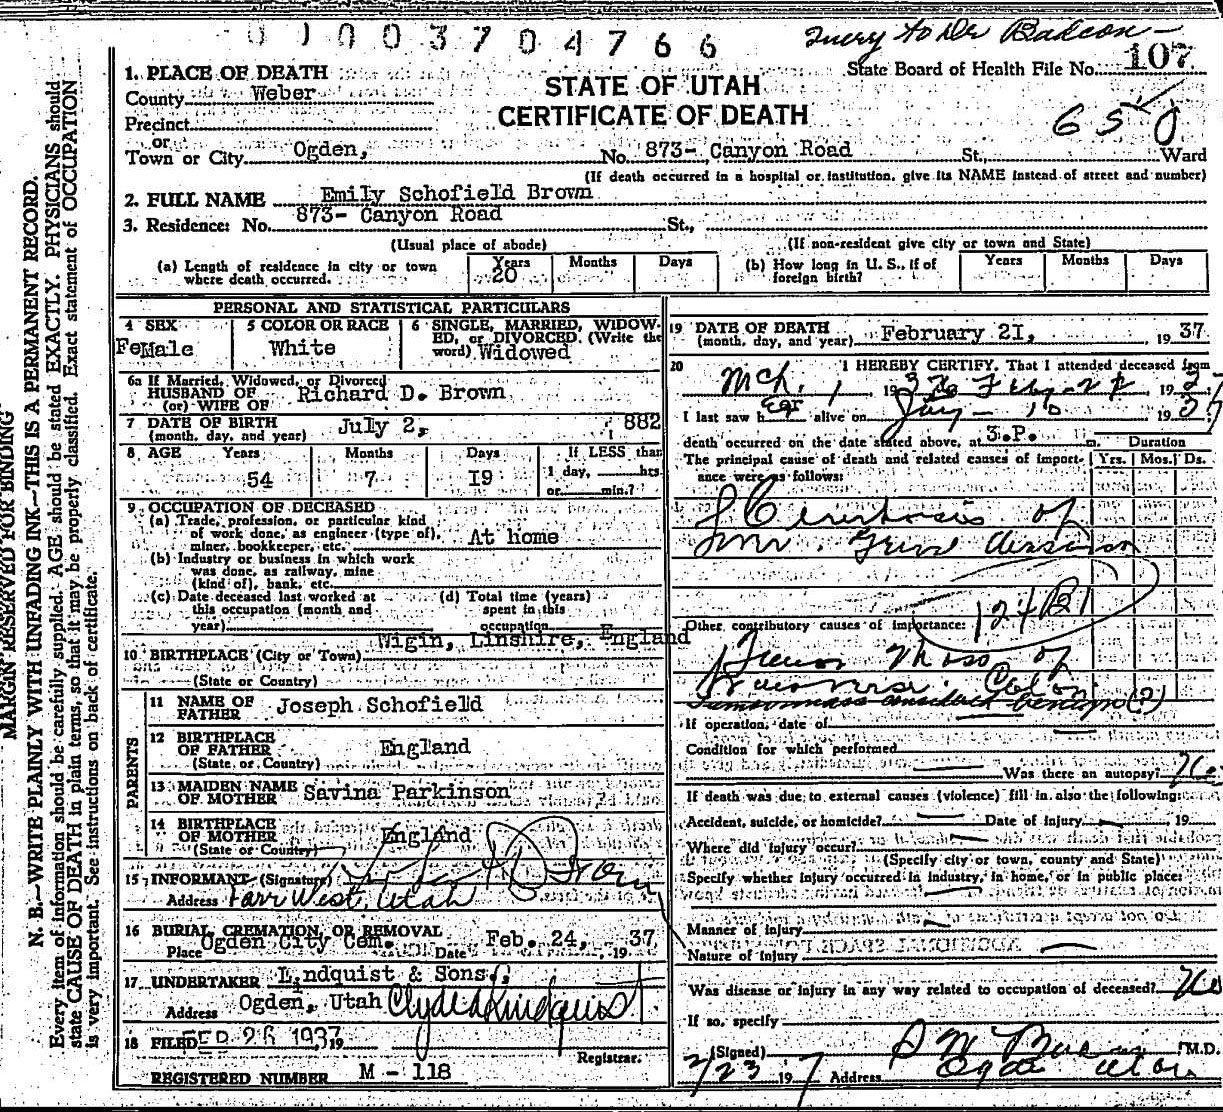 0 1 0 0 3 7 0 4 7 6 6
State Board of Health File No. 107
1. PLACE OF DEATH
STATE OF UTAH
County Weber
CERTIFICATE OF DEATH
Precinct
650
or
Town or City Ogden, No. 873- Canyon Road St., Ward
(If death occurred in a hospital or institution, give its NAME instead of street and number)
2. FULL NAME Emily Schofield Brown
3. Residence: No. 873- Canyon Road St.,
(Usual place of abode) (If non-resident give city or town and State)
(a) Length of residence in city or town where death occurred. Years 20 Months Days
(b) How long in U. S., if of foreign birth? Years Months Days
PERSONAL AND STATISTICAL PARTICULARS
4 SEX FeMale
5 COLOR OR RACE White
6 SINGLE, MARRIED, WIDOWED, or DIVORCED. (Write the word) Widowed
6a If Married, Widowed, or Divorced
HUSBAND OF
(or) WIFE OF Richard D. Brown
7 DATE OF BIRTH
(month, day, and year) July 2, 882
8 AGE Years 54 Months 7 Days I9
If LESS than
1 day, hrs.
or min.?
9 OCCUPATION OF DECEASED
(a) Trade, profession, or particular kind
of work done, as engineer (type of),
miner, bookkeeper, etc. At home
(b) Industry or business in which work
was done, as railway, mine
(kind of), bank, etc.
(c) Date deceased last worked at
this occupation (month and
year)
(d) Total time (years)
spent in this
occupation
10 BIRTHPLACE (City or Town) Wigin, Linshire, England
(State or Country)
PARENTS
11 NAME OF
FATHER Joseph Schofield
12 BIRTHPLACE
OF FATHER England
(State or Country)
13 MAIDEN NAME
OF MOTHER Savina Parkinson
14 BIRTHPLACE
OF MOTHER England
(State or Country)
15 INFORMANT (Signature)
Address Farr West, Utah
16 BURIAL, CREMATION, OR REMOVAL
Place Ogden City Cem. Date Feb. 24, 19 37
17 UNDERTAKER Lindquist & Sons.
Address Ogden, Utah Clyde Lindquist
18 FILED FEB 26 1937, 19
Registrar.
REGISTERED NUMBER M - 118
19 DATE OF DEATH
(month, day, and year) February 2I, 19 37
20 I HEREBY CERTIFY, That I attended deceased from
Mch. 1, 19
I last saw her alive on Jany 10 19 37
death occurred on the date stated above, at 3.P. m.
Duration
The principal cause of death and related causes of importance were as follows: Yrs. Mos. Ds.
Cirrhosis of
124 B
Other contributory causes of importance:
Tumor Mass of
Transverse Colon
Tumor mass considered benign (?)
If operation, date of
Condition for which performed
Was there an autopsy? No
If death was due to external causes (violence) fill in also the following:
Accident, suicide, or homicide? Date of injury , 19
Where did injury occur?
(Specify city or town, county and State)
Specify whether injury occurred in industry, in home, or in public place:
Manner of injury
Nature of injury
Was disease or injury in any way related to occupation of deceased? No
If so, specify
(Signed) M.D.
2/23 19 37 Address Ogden Utah
MARGIN RESERVED FOR BINDING
N. B.—WRITE PLAINLY WITH UNFADING INK—THIS IS A PERMANENT RECORD.
Every item of information should be carefully supplied. AGE should be stated EXACTLY. PHYSICIANS should
state CAUSE OF DEATH in plain terms, so that it may be properly classified. Exact statement of OCCUPATION
is very important. See instructions on back of certificate.